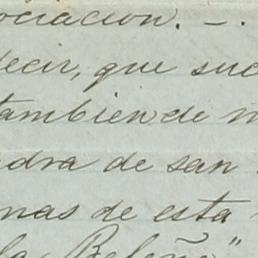 ociacion. –.
decir, que suc
tambien de m
dra de san
nas de esta
la Beleño"